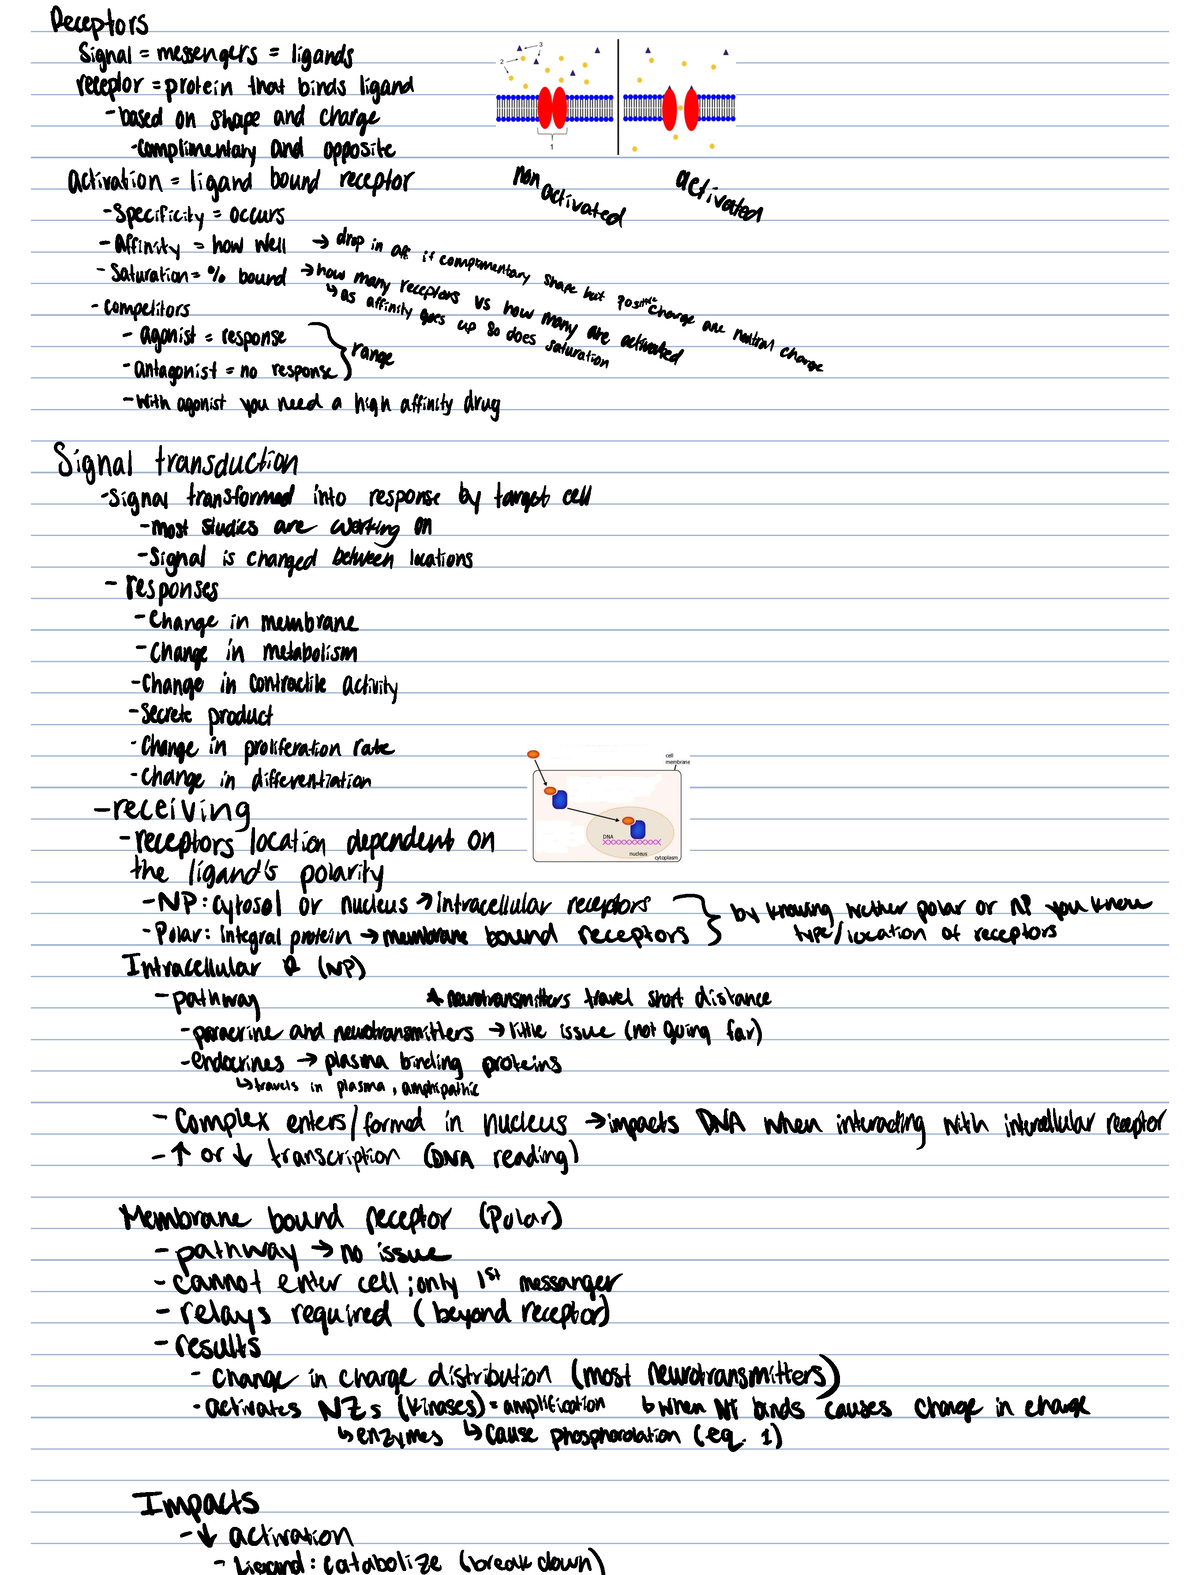 Receptors
Signal = messengers = ligands
receptor = protein that binds ligand
-based on shape and charge
-complimentary and opposite
3
2
1
non activated
activated
activation = ligand bound receptor
-Specificity = occurs
-Affinity = how well → drop in aff if complimentary shape but positive charge are neutral charge
-Saturation = % bound → how many receptors vs how many are activated
↳ as affinity goes up so does saturation
-competitors
-agonist = response
-Antagonist = no response } range
-With agonist you need a high affinity drug
Signal transduction
-Signal transformed into response by target cell
-most studies are working on
-Signal is changed between locations
-responses
-Change in membrane
-Change in metabolism
-Change in contractile activity
-Secrete product
-Change in proliferation rate
-Change in differentiation
cell membrane
DNA
nucleus
cytoplasm
-receiving
-receptors location dependent on
the ligand's polarity
-NP: cytosol or nucleus → intracellular receptors
-Polar: integral protein → membrane bound receptors } by knowing wether polar or NP you know
type/location of receptors
Intracellular R (NP)
-pathway * neurotransmitters travel short distance
-paracrine and neurotransmitters → little issue (not going far)
-endocrines → plasma binding proteins
↳ travels in plasma, amphipathic
-Complex enters/formed in nucleus → impacts DNA when interacting with intercellular receptor
-↑ or ↓ transcription (DNA reading)
Membrane bound receptor (Polar)
-pathway → no issue
-cannot enter cell; only 1st messanger
-relays required (beyond receptor)
-results
-change in charge distribution (most neurotransmitters)
-activates NZs (kinases) = amplification ↳ when NT binds causes change in charge
↳ enzymes ↳ cause phosphorolation (eq. 1)
Impacts
-↓ activation
-Ligand: catabolize (break down)